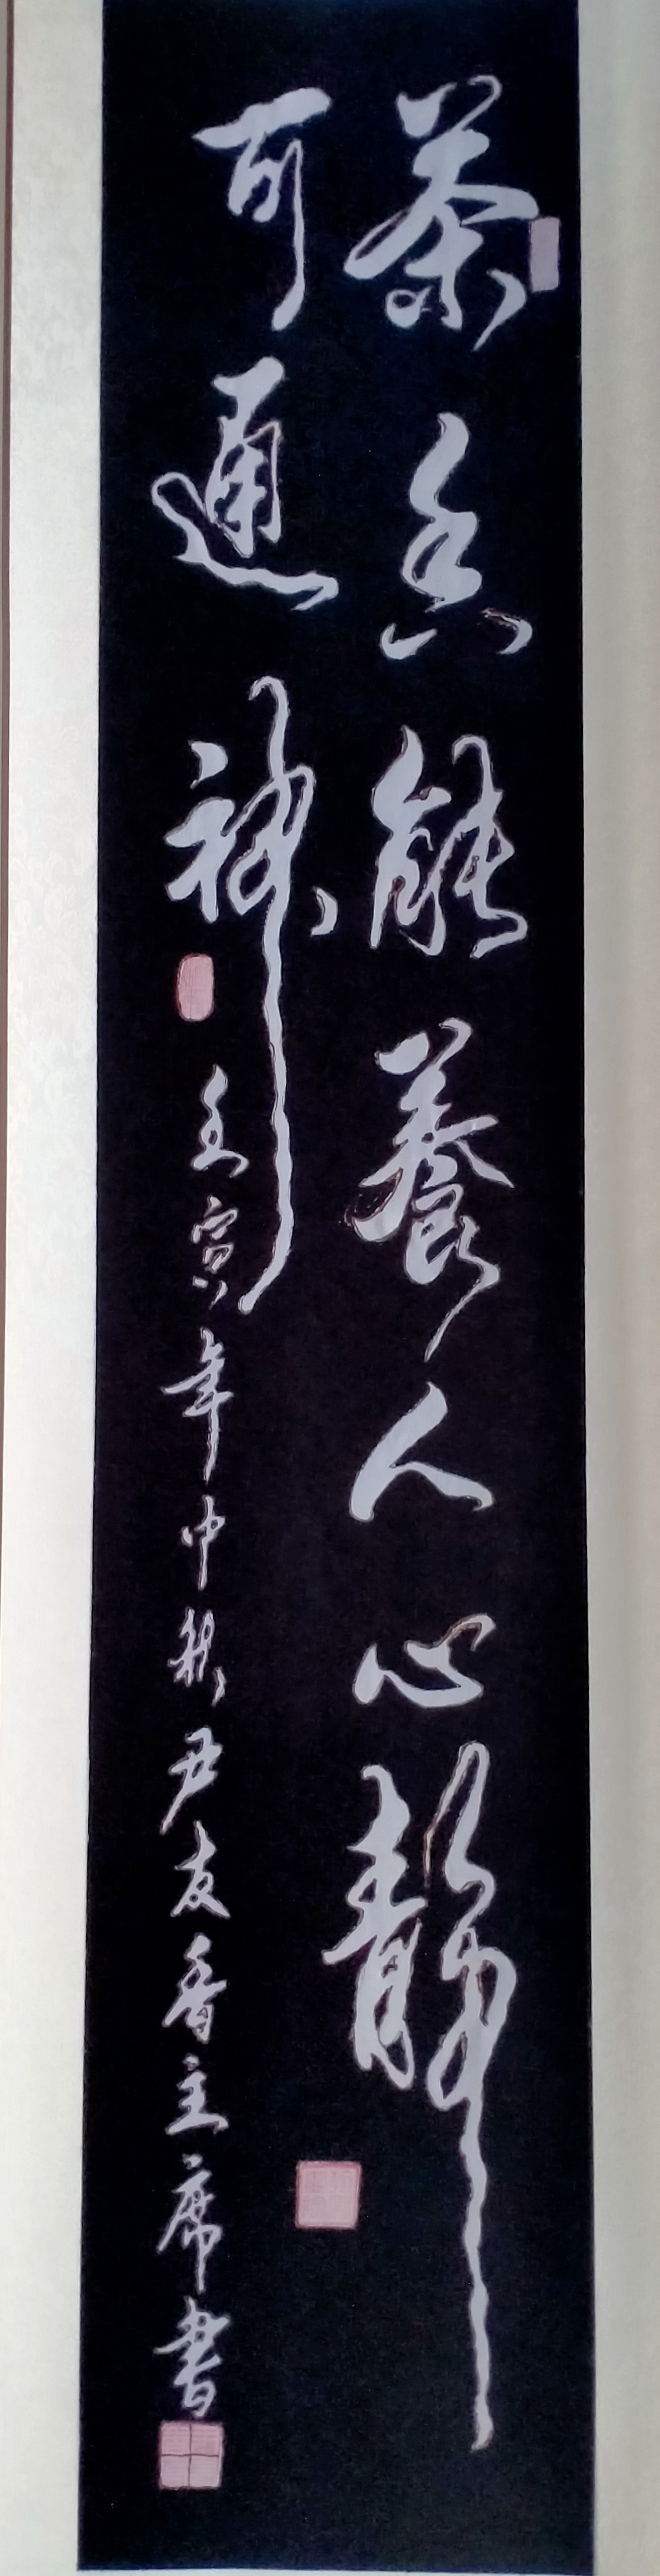 茶能養人心靜
可通神 壬寅年中秋尹友香主席書